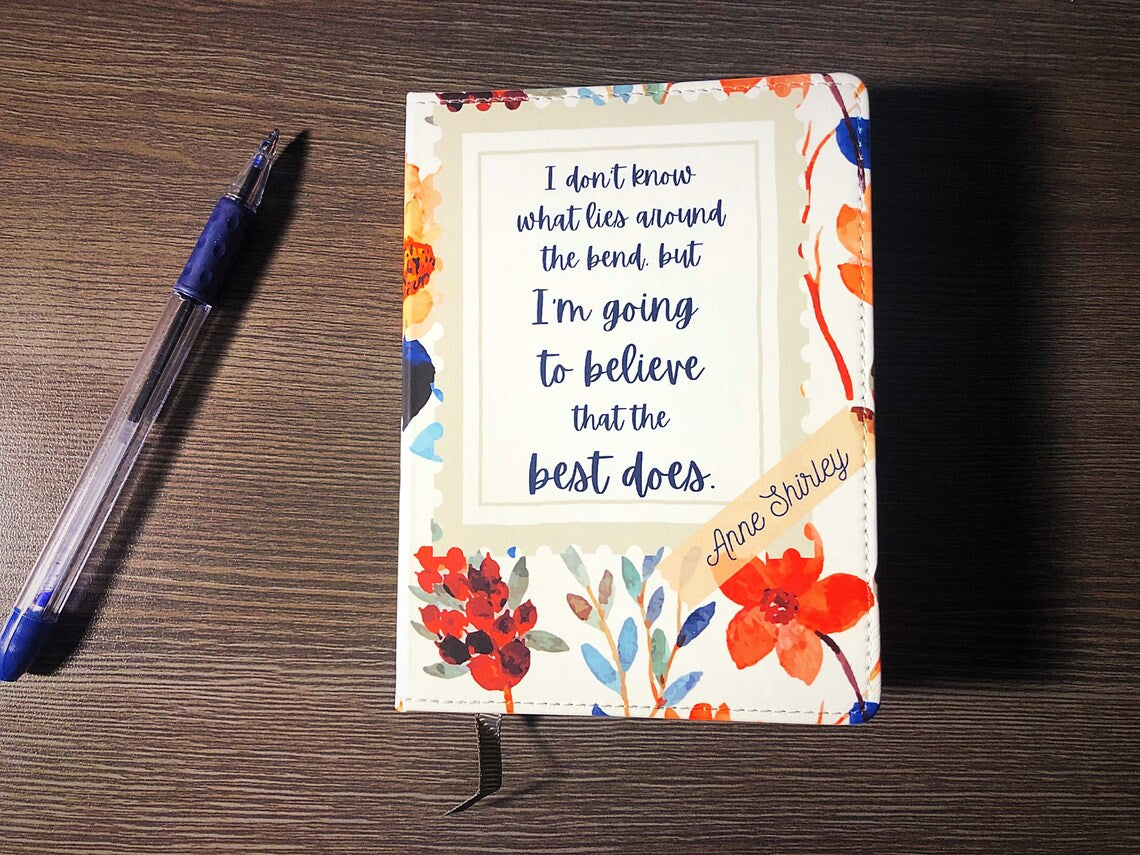 I don't know
what lies around
the bend. but
I'm going
to believe
that the
best does.
Anne Shirley